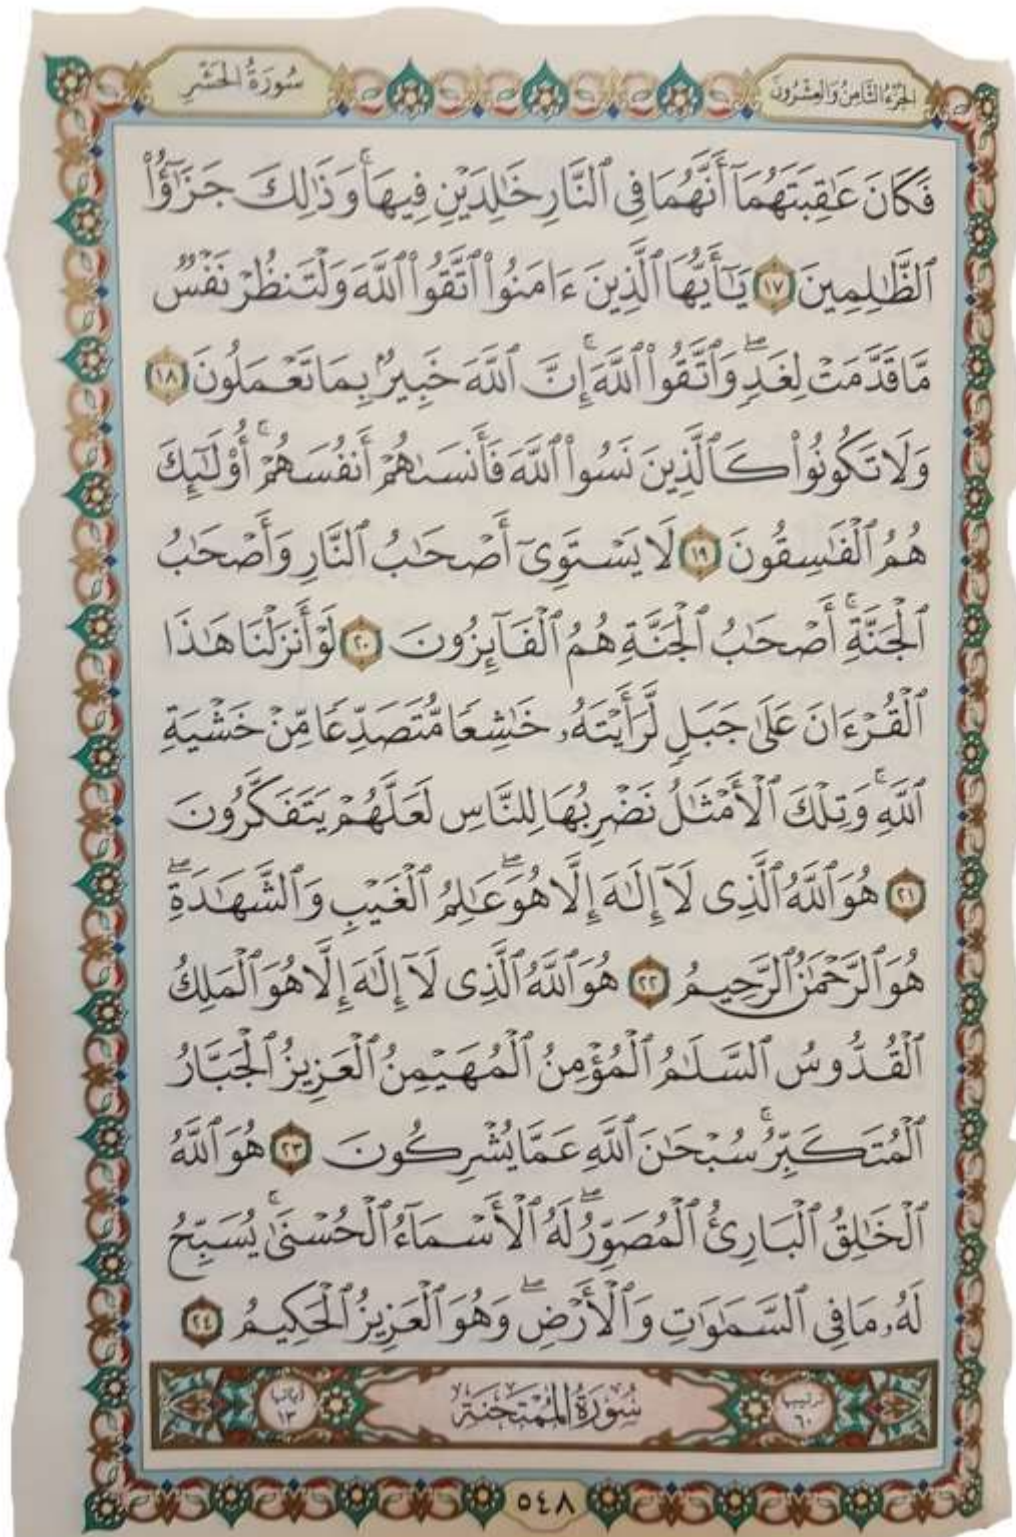 الجزء الثامن والعشرون
سُورَةُ الحَشْرِ
فَكَانَ عَٰقِبَتَهُمَآ أَنَّهُمَا فِي ٱلنَّارِ خَٰلِدَيْنِ فِيهَاۚ وَذَٰلِكَ جَزَٰٓؤُاْ
ٱلظَّٰلِمِينَ ١٧ يَٰٓأَيُّهَا ٱلَّذِينَ ءَامَنُواْ ٱتَّقُواْ ٱللَّهَ وَلْتَنظُرْ نَفْسٌ
مَّا قَدَّمَتْ لِغَدٍۖ وَٱتَّقُواْ ٱللَّهَۚ إِنَّ ٱللَّهَ خَبِيرٌۢ بِمَا تَعْمَلُونَ ١٨
وَلَا تَكُونُواْ كَٱلَّذِينَ نَسُواْ ٱللَّهَ فَأَنسَىٰهُمْ أَنفُسَهُمْۚ أُوْلَٰٓئِكَ
هُمُ ٱلْفَٰسِقُونَ ١٩ لَا يَسْتَوِيٓ أَصْحَٰبُ ٱلنَّارِ وَأَصْحَٰبُ
ٱلْجَنَّةِۚ أَصْحَٰبُ ٱلْجَنَّةِ هُمُ ٱلْفَآئِزُونَ ٢٠ لَوْ أَنزَلْنَا هَٰذَا
ٱلْقُرْءَانَ عَلَىٰ جَبَلٍ لَّرَأَيْتَهُۥ خَٰشِعًا مُّتَصَدِّعًا مِّنْ خَشْيَةِ
ٱللَّهِۚ وَتِلْكَ ٱلْأَمْثَٰلُ نَضْرِبُهَا لِلنَّاسِ لَعَلَّهُمْ يَتَفَكَّرُونَ
٢١ هُوَ ٱللَّهُ ٱلَّذِي لَآ إِلَٰهَ إِلَّا هُوَۖ عَٰلِمُ ٱلْغَيْبِ وَٱلشَّهَٰدَةِۖ
هُوَ ٱلرَّحْمَٰنُ ٱلرَّحِيمُ ٢٢ هُوَ ٱللَّهُ ٱلَّذِي لَآ إِلَٰهَ إِلَّا هُوَ ٱلْمَلِكُ
ٱلْقُدُّوسُ ٱلسَّلَٰمُ ٱلْمُؤْمِنُ ٱلْمُهَيْمِنُ ٱلْعَزِيزُ ٱلْجَبَّارُ
ٱلْمُتَكَبِّرُۚ سُبْحَٰنَ ٱللَّهِ عَمَّا يُشْرِكُونَ ٢٣ هُوَ ٱللَّهُ
ٱلْخَٰلِقُ ٱلْبَارِئُ ٱلْمُصَوِّرُۖ لَهُ ٱلْأَسْمَآءُ ٱلْحُسْنَىٰۚ يُسَبِّحُ
لَهُۥ مَا فِي ٱلسَّمَٰوَٰتِ وَٱلْأَرْضِۖ وَهُوَ ٱلْعَزِيزُ ٱلْحَكِيمُ ٢٤
ترتيبها ٦٠
سُورَةُ المُمْتَحنَةِ
آياتها ١٣
٥٤٨